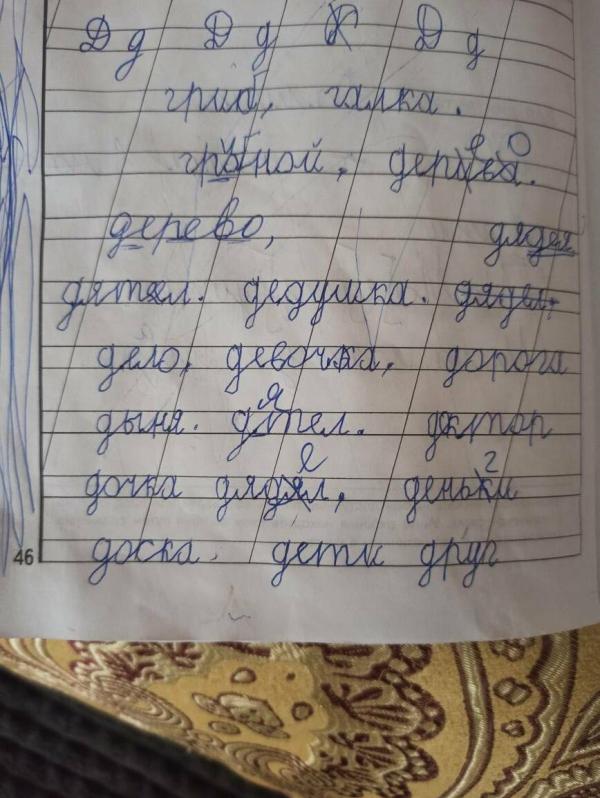 Д д Д д К Д д
гриб, галка.
грибной, дерево.
дерево, дядея
дятел. дедушка. дядел,
дело, девочка, дорога
дыня. дятел. дктор
дочка дядел, деньги
доска. дети друг
46